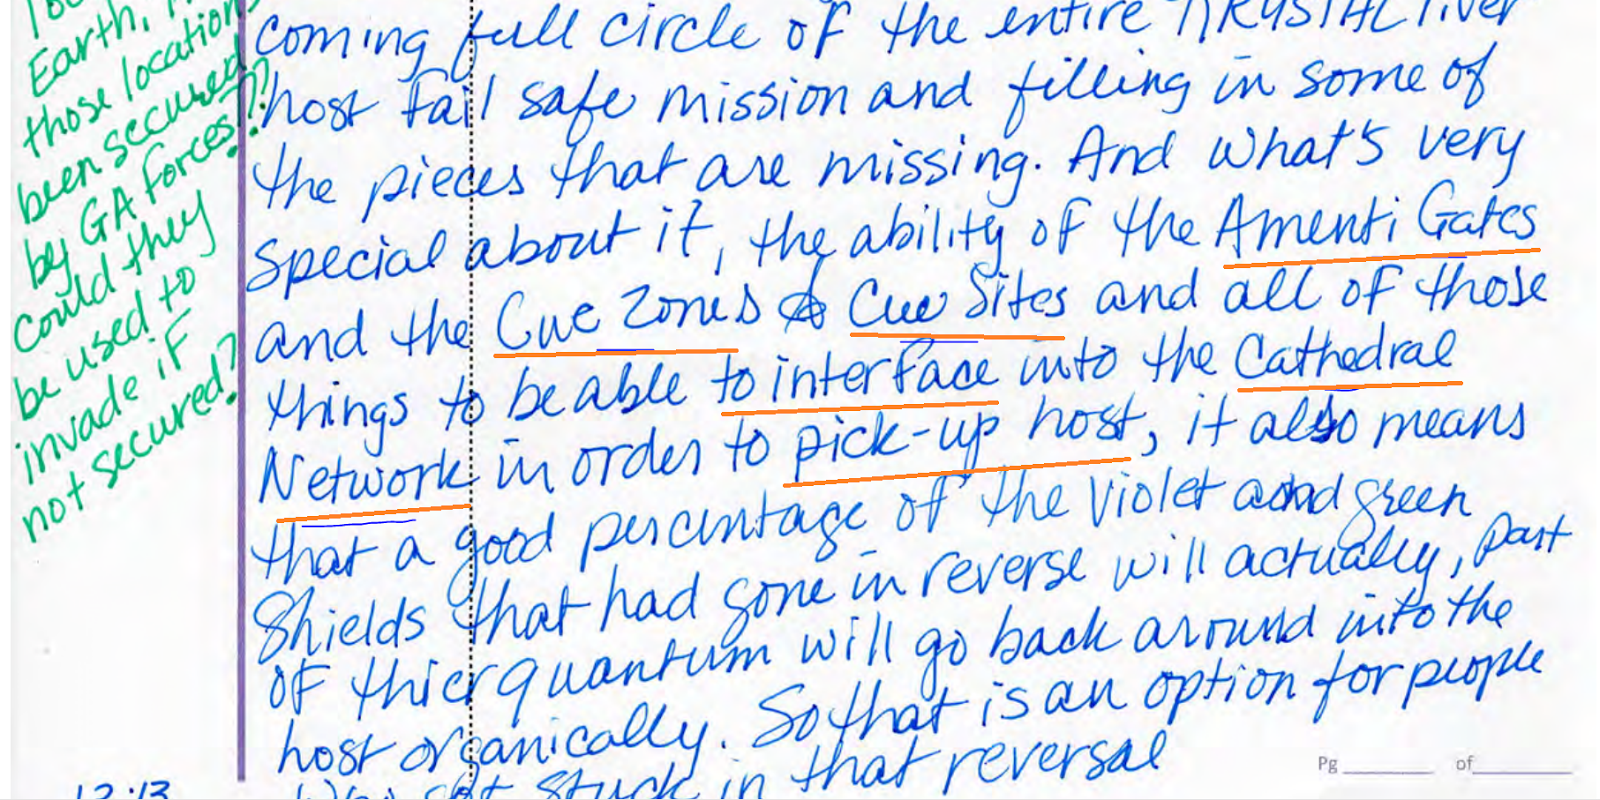 Earth,
those locations
been secured
by GA forces??
Could they
be used to
invade if
not secured?
coming full circle of the entire KRYSTAL river
host fail safe mission and filling in some of
the pieces that are missing. And what's very
special about it, the ability of the Amenti Gates
and the Cue Zones & Cue Sites and all of those
things to be able to interface into the Cathedral
Network in order to pick-up host, it also means
that a good percentage of the violet and green
Shields that had gone in reverse will actually, part
of thier quantum will go back around into the
host organically. So that is an option for people
who got stuck in that reversal
12:13
Pg of